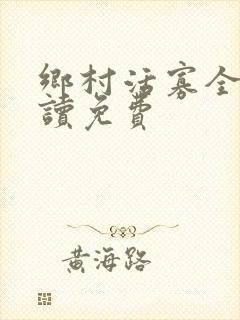 鄉村活寡全
讀免費
黃海路